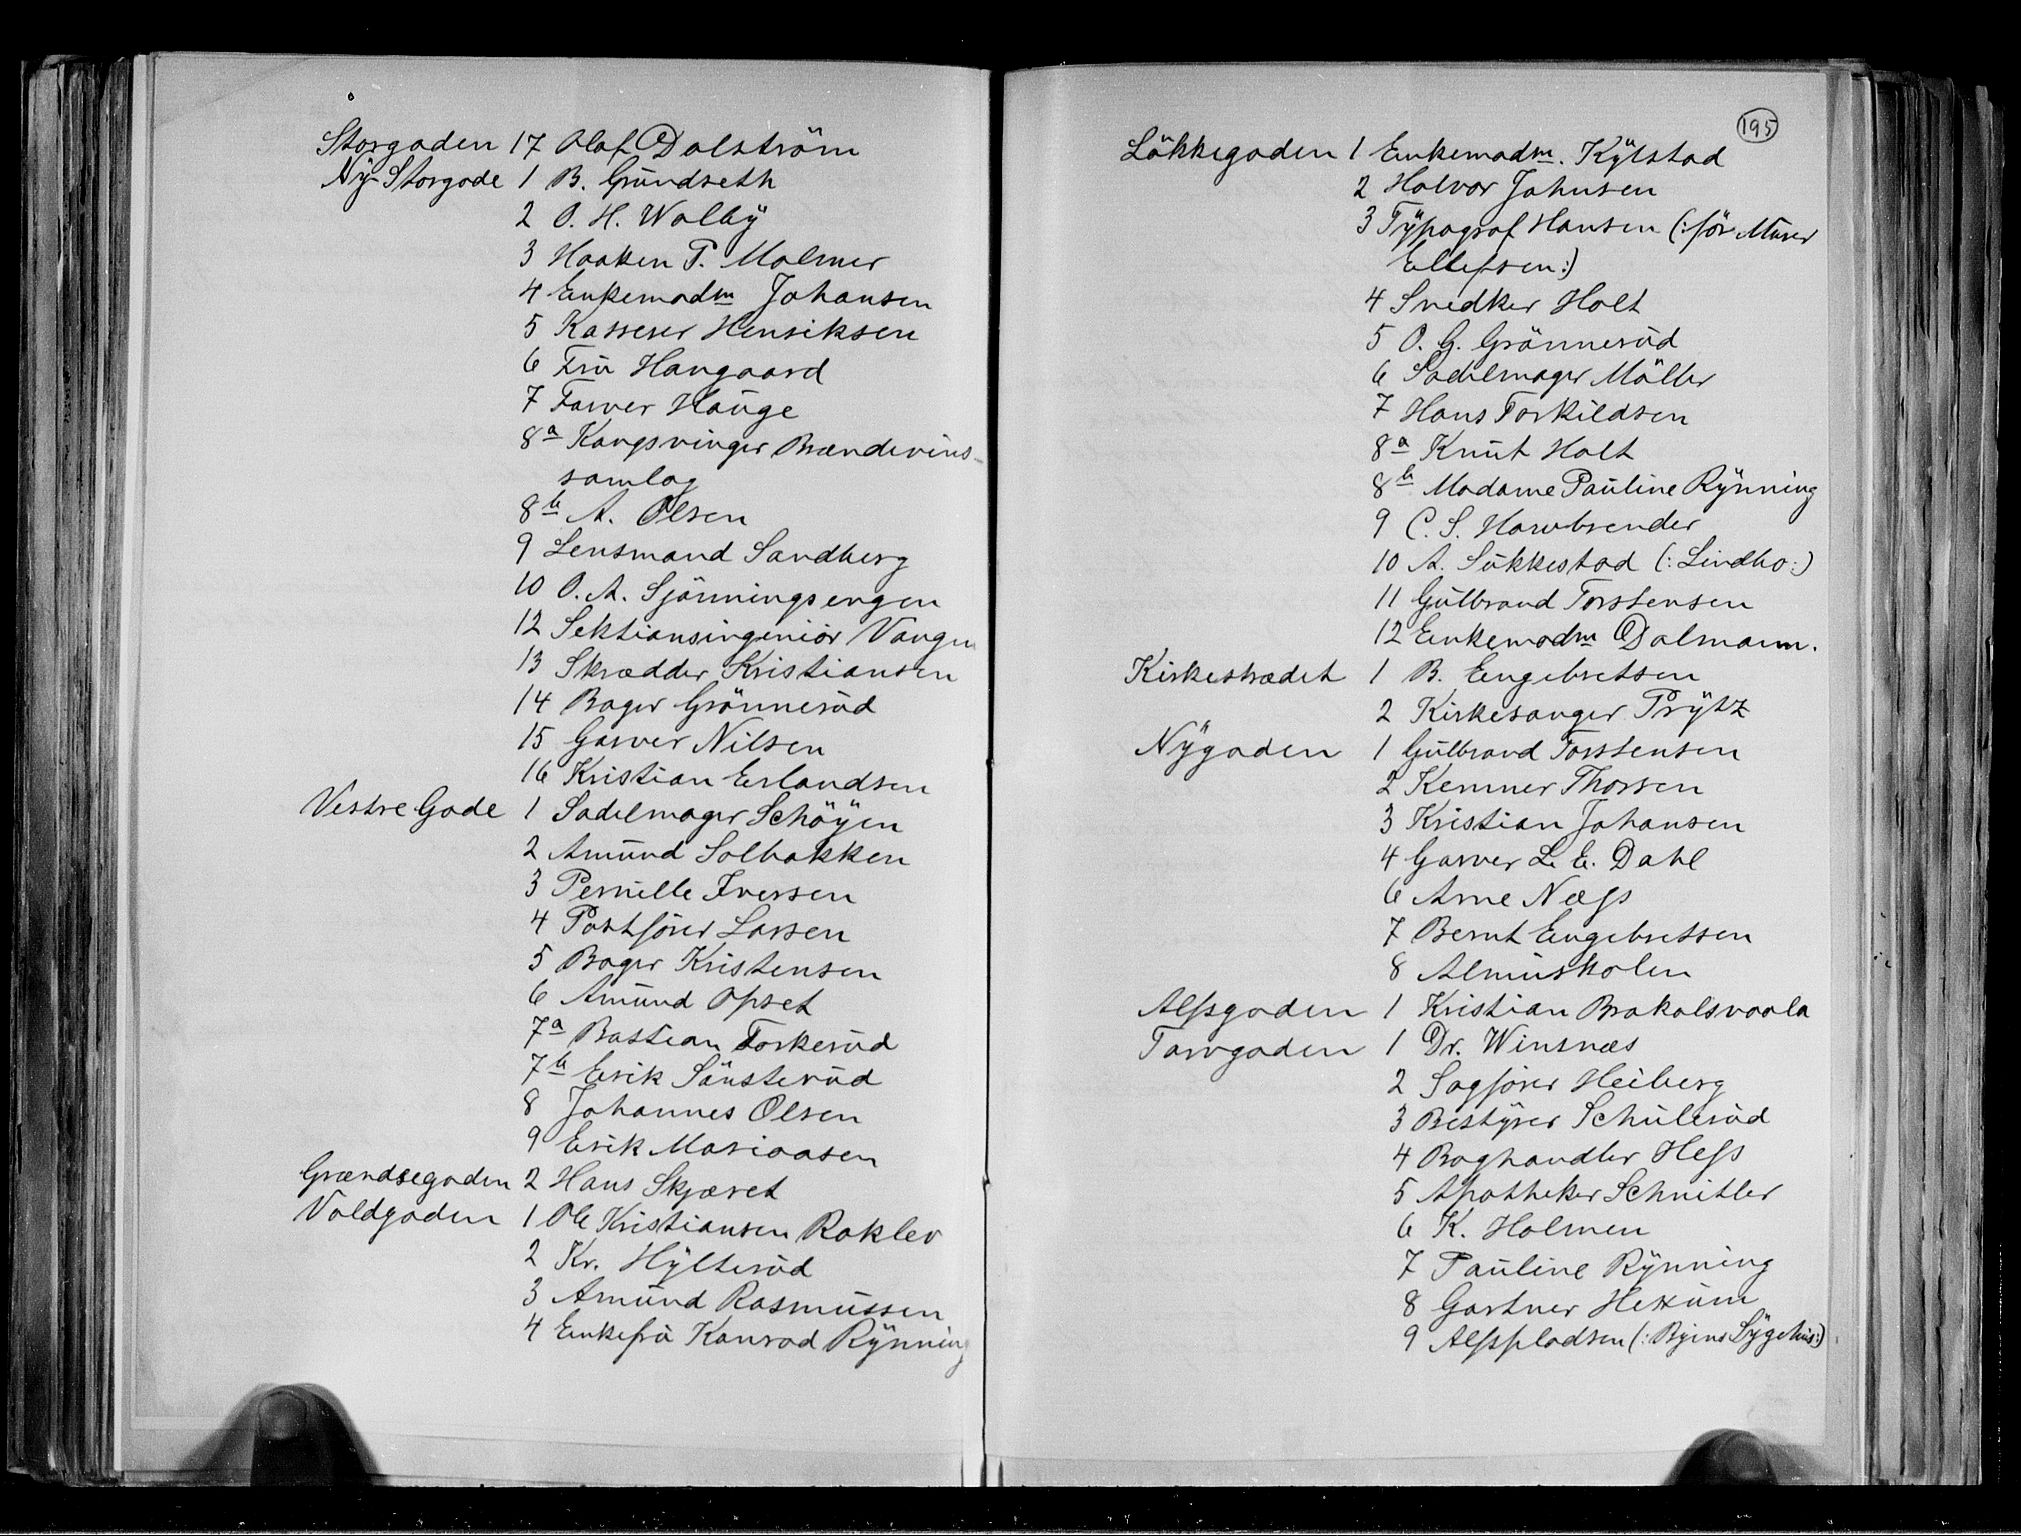 Storgaden 17 Olaf Dalström
Ny Storgade 1 B. Grundseth
2 O. H. Walby
3 Haaken P. Malmer
4 Enkemadm Johansen
5 Kasserer Henriksen
6 Fru Haugaard
7 Farver Hauge
8a Kongsvinger Brændevins-
samlag
8b A. Olsen
9 Lensmand Sandberg
10 O. A. Sjönningsengen
12 Sektionsingeniör Vangen
13 Skrædder Kristiansen
14 Bager Grönnerud
15 Garver Nilsen
16 Kristian Erlandsen
Vestre Gade 1 Sadelmager Schöyen
2 Amund Solbakken
3 Pernille Iversen
4 Postförer Larsen
5 Bager Kristensen
6 Amund Opset
7a Bastian Torkerud
7b Erik Sönsterud
8 Johannes Olsen
9 Erik Mariaasen
Grændsegaden 2 Hans Skjæret
Voldgaden 1 Ole Kristiansen Roklev
2 Kr. Hylterud
3 Amund Rasmussen
4 Enkefru Konrad Rynning
195
Lökkegaden 1 Enkemadm. Kylstad
2 Halvor Johnsen
3 Typograf Hansen (:för Murer
Ellefsen:)
4 Snedker Holt
5 O. G. Grönnerud
6 Sadelmager Möller
7 Hans Torkildsen
8a Knut Holt
8b Madame Pauline Rynning
9 C. S. Hornbrender
10 A. Sukkestad (:Lindbo:)
11 Gulbrand Torstensen
12 Enkemadm Dalmann.
Kirkestrædet 1 B. Engebretsen
2 Kirkesanger Prytz
Nygaden 1 Gulbrand Torstensen
2 Kemner Thorsen
3 Kristian Johansen
4 Garver L. E. Dahl
6 Arne Næss
7 Bernt Engebretsen
8 Almuskolen
Alfsgaden 1 Kristian Brakalsvaala
Tarvgaden 1 Dr. Winsnæs
2 Sagförer Heiberg
3 Bestyrer Schulerud
4 Boghandler Hess
5 Apotheker Schnitler
6 K. Holmen
7 Pauline Rynning
8 Gartner Hexum
9 Alfspladsen (:Byens Sygehus:)